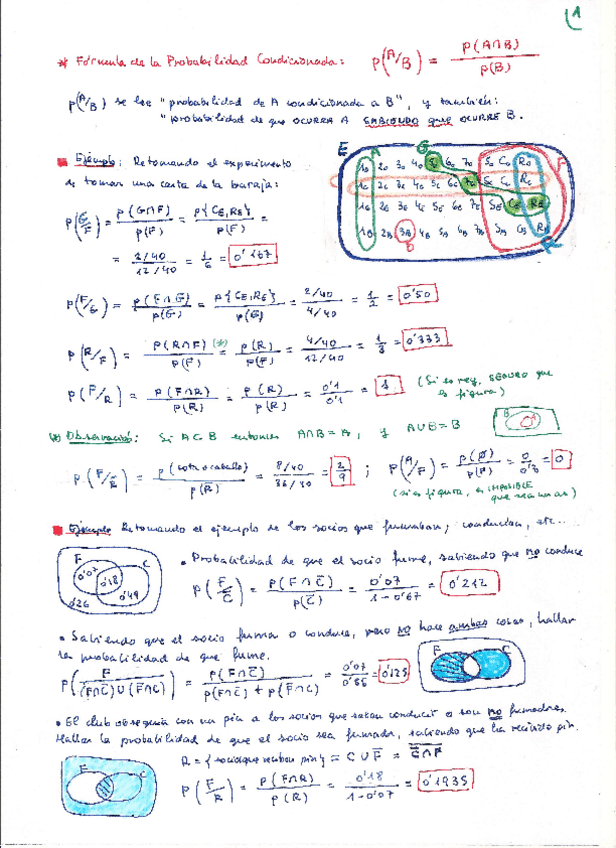 1
* Fórmula de la Probabilidad Condicionada: P(A/B) = P(A∩B) / P(B)
P(A/B) se lee "probabilidad de A condicionada a B", y también:
"probabilidad de que OCURRA A SABIENDO que OCURRE B.
Ejemplo: Retomando el experimento
de tomar una carta de la baraja:
P(G/F) = P(G∩F) / P(F) = P{CE, RE} / P(F) =
= 2/40 / 12/40 = 1/6 = 0'167
P(F/G) = P(F∩G) / P(G) = P{CE, RE} / P(G) = 2/40 / 4/40 = 1/2 = 0'50
P(R/F) = P(R∩F) (*) / P(F) = P(R) / P(F) = 4/40 / 12/40 = 1/3 = 0'333
P(F/R) = P(F∩R) / P(R) = P(R) / P(R) = 0'1 / 0'1 = 1 (Si es rey, SEGURO que es figura)
(*) Observación: Si A⊂B entonces A∩B = A, y A∪B = B
P(F/R̅) = P(sota o caballo) / P(R̅) = 8/40 / 36/40 = 2/9 ; P(A/F) = P(Ø) / P(F) = 0 / 0'3 = 0
(si es figura, es IMPOSIBLE que sea un as)
Ejemplo Retomando el ejemplo de los socios que fumaban, conducían, etc..
F C 0'07 0'18 0'49 0'26
• Probabilidad de que el socio fume, sabiendo que no conduce
P(F/C̅) = P(F∩C̅) / P(C̅) = 0'07 / 1-0'67 = 0'212
• Sabiendo que el socio fuma o conduce, pero no hace ambas cosas, hallar
la probabilidad de que fume.
P(F / (F∩C̅)∪(F̅∩C)) = P(F∩C̅) / P(F∩C̅) + P(F̅∩C) = 0'07 / 0'56 = 0'125
F C
• El club obsequia con un pin a los socios que saben conducir o son no fumadores.
Hallar la probabilidad de que el socio sea fumador, sabiendo que ha recibido pin.
R = {socios que reciben pin} = C∪F̅
F C
P(F/R) = P(F∩R) / P(R) = 0'18 / 1-0'07 = 0'1935